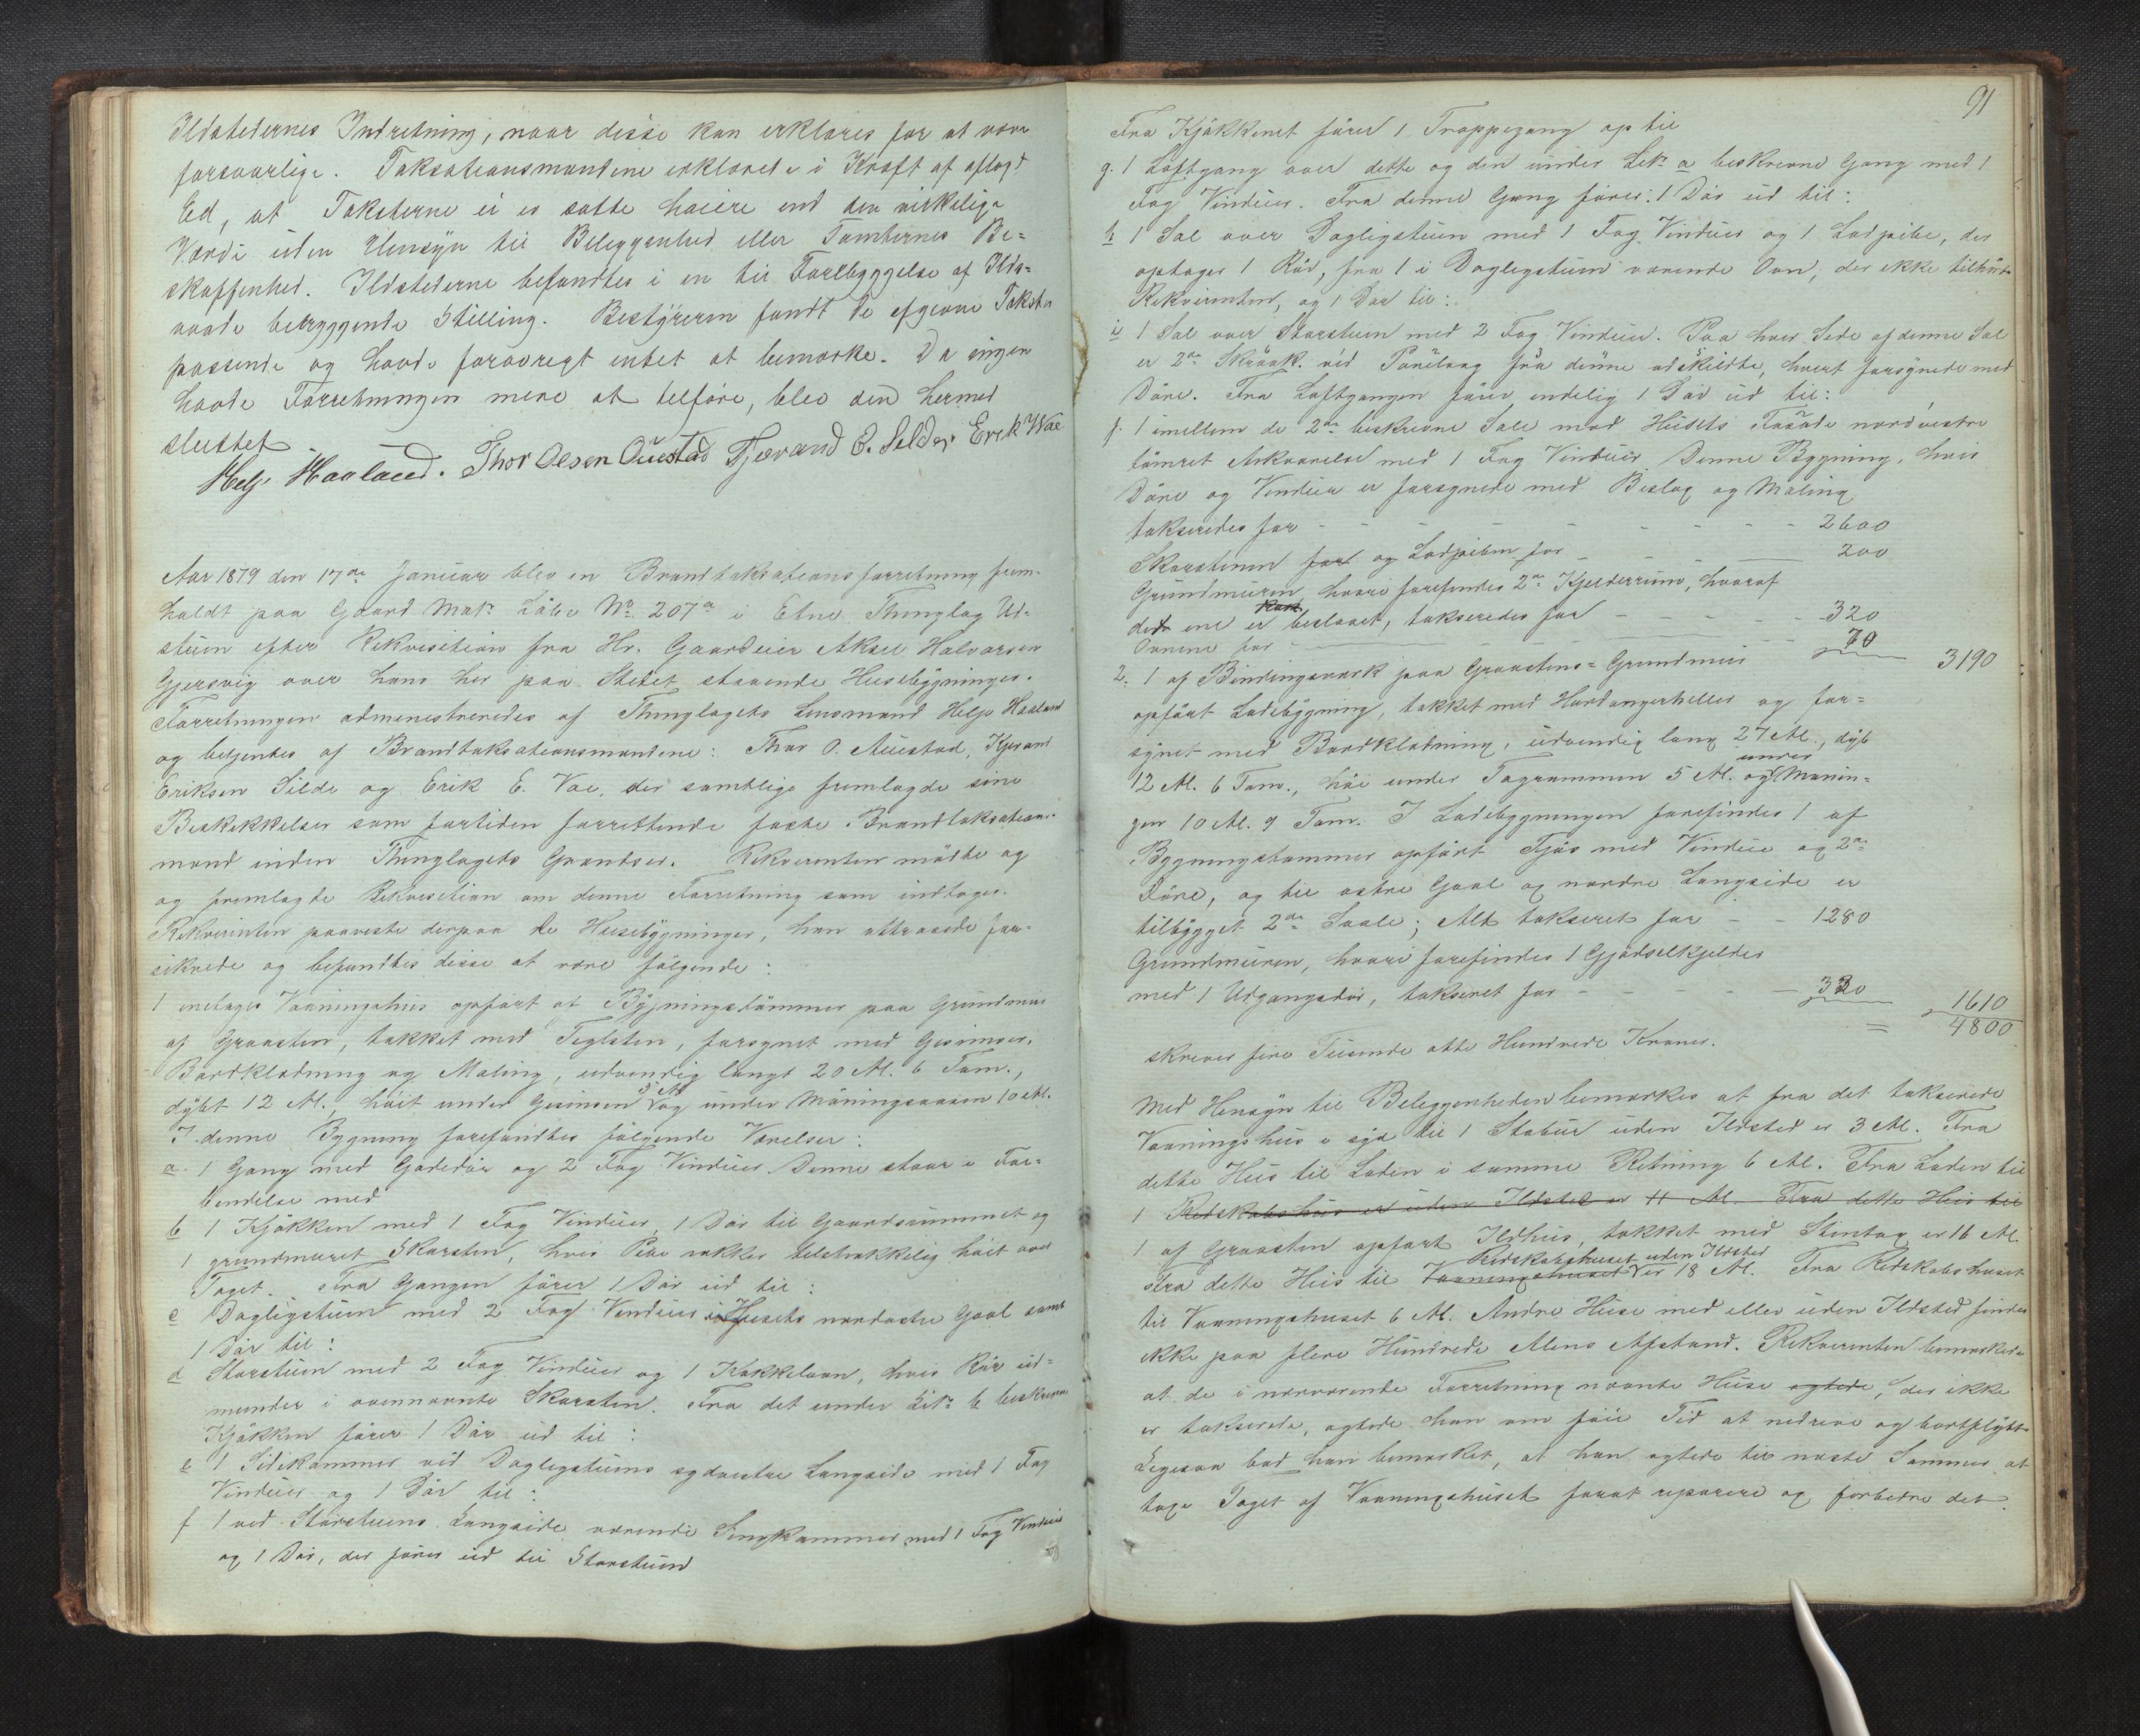 Ildstedernes Indretning, naar disse kan erklæres for at være
forsvarlige. Taksationsmændene erklærede i Kraft af aflagt
Ed, at Taksterne ei er satte høiere end den virkelige
Værdi uden Hensyn til Beliggenhed eller Tomternes Be=
skaffenhed. Ildstederne befandtes i en til Forebyggelse af Ilds=
vaade betryggende Stilling. Bestyreren fandt de afgivne Takster
passende og havde forøvrigt intet at bemærke. Da ingen
havde Forretningen mere at tilføre, blev den hermed
sluttet
Helje Haaland. Thor Olsen Ouestad Tjerand E. Silde Erik Vae
Aar 1879 den 17de Januar blev en Brandtaksationsforretning frem-
holdt paa Gaard Matr Løbe No 207a i Etne Thinglag Ud-
støen efter Rekvisition fra Hr. Gaardeier Aksel Halvorsen
Gjersvig over hans her paa Stedet staaende Husebygninger.
Forretningen administreredes af Thinglagets Lensmand Helje Haaland
og betjentes af Brandtaksationsmændene: Thor O. Austad, Tjerand
Eriksen Silde og Erik E. Vae, der samtlige fremlagde sine
Beskikkelser som fortiden forrettende faste Brandtaksations-
mænd inden Thinglagets Grændser. Rekvirenten mødte og
og fremlagde Rekvisition om denne Forretning som indtages.
Rekvirenten paaviste derpaa de Husebygninger, han attraaede for-
sikrede og befandtes disse at være følgende:
1 enetages Vaaningshus opført af Bygningstømmer paa Grundmur
af Graasten, takket med Teglsten, forsynet med Gesimser,
Bordklædning og Maling, udvendig langt 20 Al. 6 Tom.,
dybt 12 Al., høit under Gesimsen 5 Al og under Mønningsaasen 10 Al.
I denne Bygning forefandtes følgende Værelser:
a. 1 Gang med Gadedør og 2 Fag Vinduer. Denne staar i For=
bindelse med
b 1 Kjøkken med 1 Fag Vinduer, 1 Dør til Gaardsrummet og
1 grundmuret Skorsten, hvis Pibe rækker tilstrækkelig høit over
Taget. Fra Gangen fører 1 Dør ud til:
c Dagligstuen med 2 Fag Vinduer i Husets nordøstre Gavl samt
1 Dør til:
d Storstuen med 2 Fag Vinduer og 1 Kakkelovn, hvis Rør ud=
munder i ovennævnte Skorsten. Fra det under Litr b beskrevne
Kjøkken fører 1 Dør ud til:
e 1 Sidekammer ved Dagligstuens sydvestre Langside med 1 Fag
Vinduer og 1 Dør til:
f 1 ved Storstuens Langside værende Sengkammer med 1 Fag Vinduer
og 1 Dør, der fører ud til Storstuen
91
Fra Kjøkkenet fører 1 Trappegang op til
g. 1 Loftgang over dette og den under Litr a beskrevne Gang med 1
Fag Vinduer. Fra denne Gang fører 1 Dør ud til:
h 1 Sal over Dagligstuen med 1 Fag Vinduer og 1 Lodpibe, der
optager 1 Rør, fra 1 i Dagligstuen værende Ovn, der ikke tilhører
Rekvirenten, og 1 Dør til:
i 1 Sal over Storstuen med 2 Fag Vinduer. Paa hver Side af denne Sal
er 2de Skraak. ved Panelværg fra denne adskildte, hvert forsynede med
Døre. Fra Loftgangen fører endelig 1 Dør ud til:
j. 1 imellem de 2de beskrevne Sale mod Husets Façade nordvestre
tømret Arkværelse med 1 Fag Vinduer. Denne Bygning, hvis
Døre og Vinduer er forsynede med Beslag og Maling
takseredes for - - - - - - - 2600
Skorstenen fort og Lodpiben for - - - 200
Grundmuren, hvori forefindes 2de Kjelderrum, hvoraf
det ene er beslaaet, takseredes for - - - 320
Ovnene for - - - 70 3190
2. 1 af Bindingsværk paa Graastens=Grundmur
opført Ladebygning, takket med Hardangerheller og for=
synet med Bordklædning, udvendig lang 27 Al., dyb
12 Al. 6 Tom., høi under Tagrammen 5 Al. og under Mønin=
gen 10 Al. 9 Tom. I Ladebygningen forefindes 1 af
Bygningstømmer opført Fjøs med Vindue og 2de
Døre, og til østre Gavl og nordre Langside er
tilbygget 2de Svale; Alt takseret for - - 1280
Grundmuren, hvori forefindes 1 Gjødselkjelder
med 1 Udgangsdør, takseret for - - - 330 1610
= 4800
skriver fire Tusende otte Hundrede Kroner.
Med Hensyn til Beliggenheden bemærkes at fra det takserede
Vaaningshus i syd til 1 Stabur uden Ildsted er 3 Al. Fra
dette Hus til Laden i samme Retning 6 Al. Fra Laden til
1 Redskabshus er uden Ildsted er 11 Al. Fra dette Hus til
1 af Graasten opført Ildhus, takket med Stentag er 16 Al.
Fra dette Hus til Vaaningshuset Redskabshuset uden Ildsted er 18 Al. Fra Redskabshuset
til Vaaningshuset 6 Al. Andre Huse med eller uden Ildsted findes
ikke paa flere Hundrede Alens Afstand. Rekvirenten bemærkede
at de i nærværende Forretning nævnte Huse agtede, der ikke
er takserede, agtede han om føie Tid at nedrive og bortflytte
Ligesaa bad han bemærket, at han agtede til næste Sommer at
tage Taget af Vaaningshuset forat reparere og forbedre det.